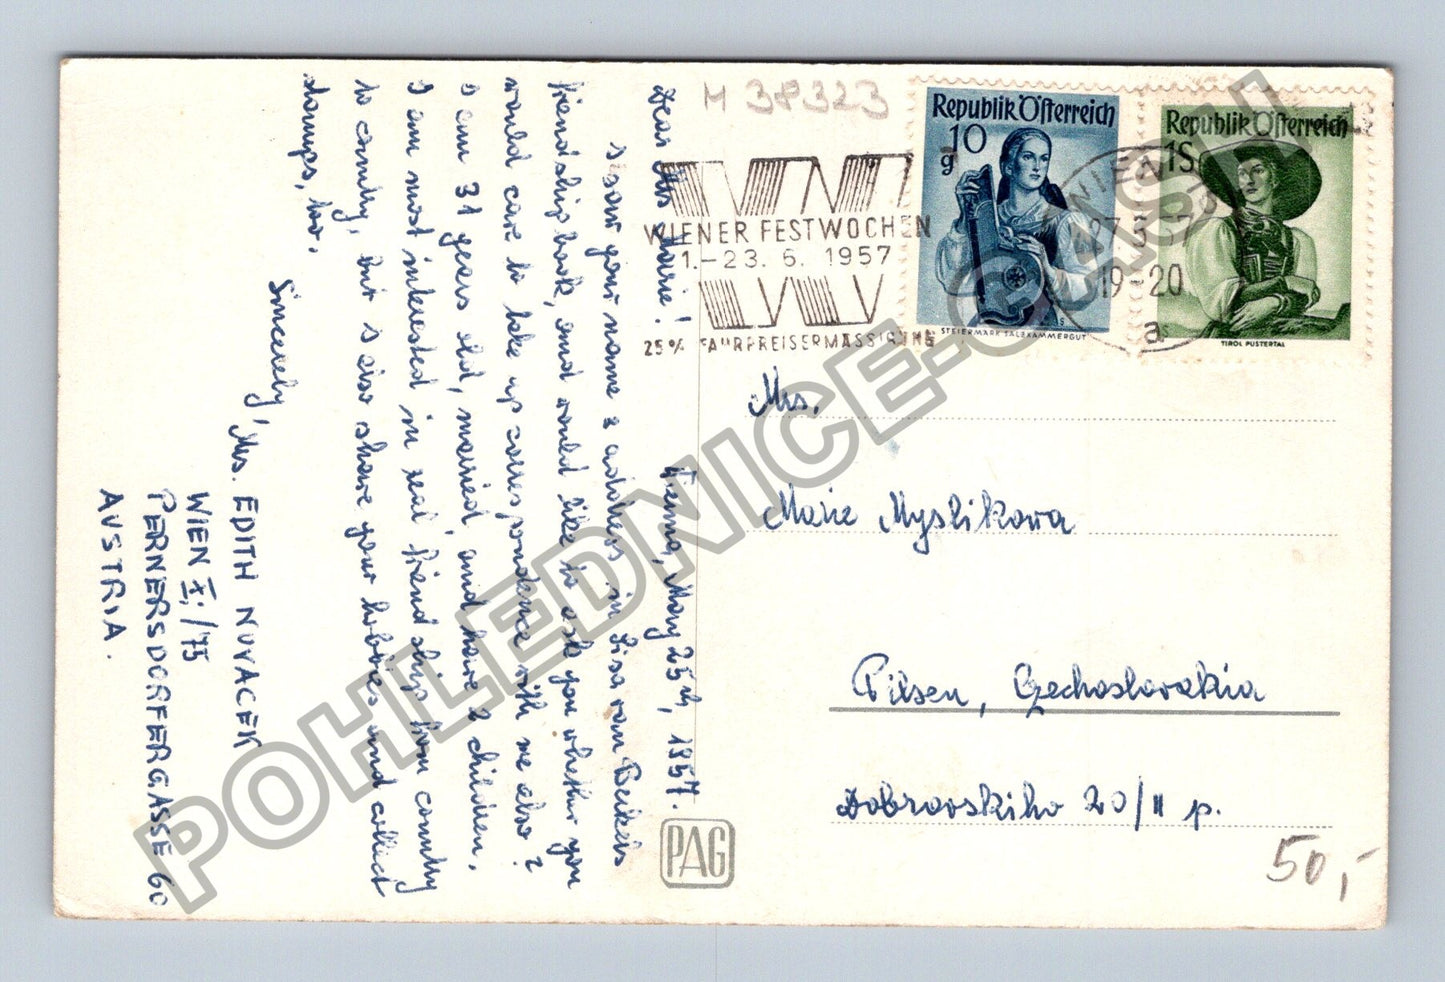 M 38323
Republik Österreich
10
g
STEIERMARK SALZKAMMERGUT
Republik Österreich
1S
TIROL PUSTERTAL
WIEN
27.3.57
19-20
a
WIENER FESTWOCHEN
1.–23. 6. 1957
25% FAHRPREISERMÄSSIGUNG
Vienna, May 25th, 1957.
Dear Mrs Marie!
I saw your name & address in Lisa van Beikeis
friendship book, and would like to ask you whether you
would care to take up correspondence with me also?
I am 31 years old, married, and have 2 children.
I am most interested in real friendship from country
to country, but I also share your hobbies and collect
stamps, too.
Sincerely,
Mrs. EDITH NOVACEK
WIEN X;/75
PERNERSDORFERGASSE 60
AUSTRIA.
Mrs.
Marie Myslikova
Pilsen, Czechoslovakia
Dobrovskiho 20/II p.
PAG
50,-
POHLEDNICE-CASH